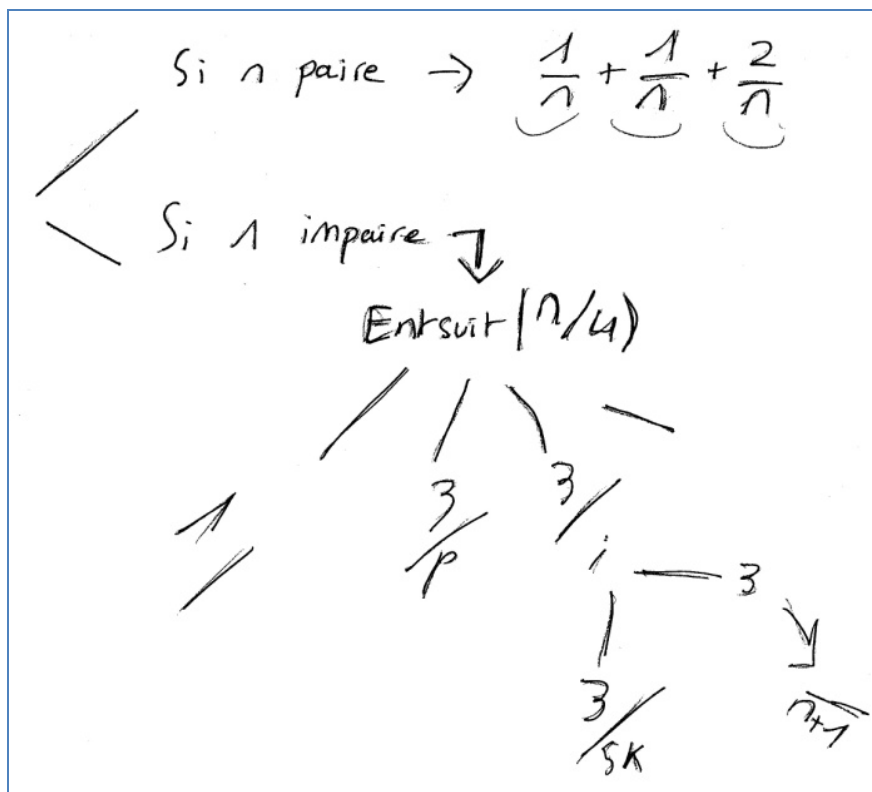 Si n paire → 1/n + 1/n + 2/n
Si n impaire
Entsuit(n/4)
1/
3/p
3/i
3
3/5K
n+1